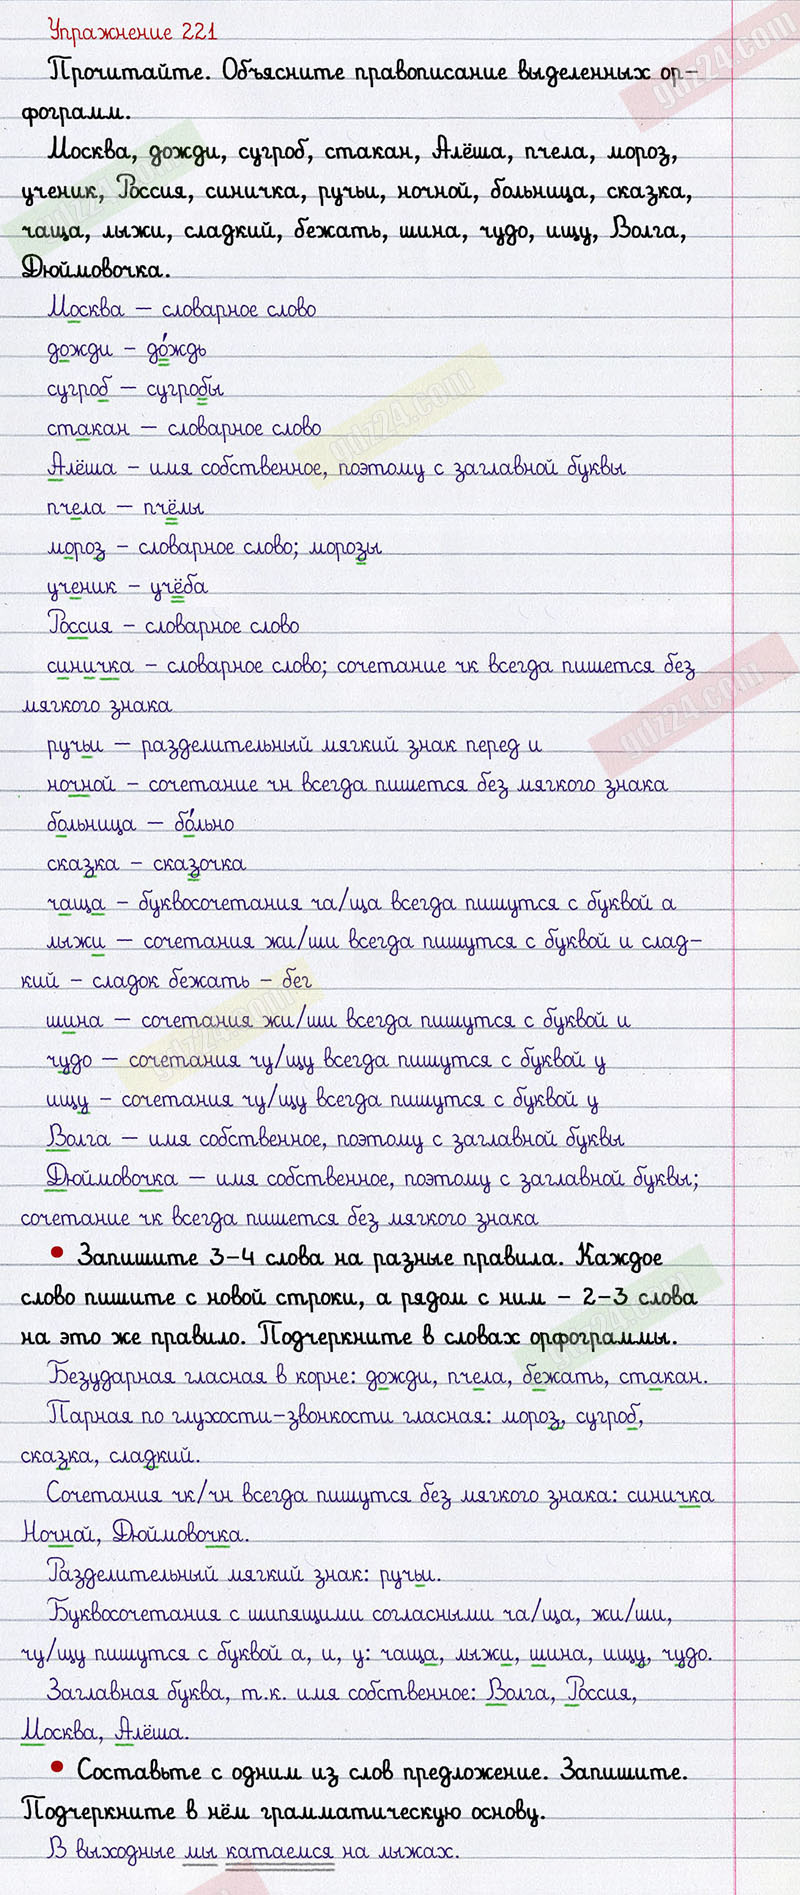 Упражнение 221
Прочитайте. Объясните правописание выделенных ор-
фограмм.
Москва, дожди, сугроб, стакан, Алёша, пчела, мороз,
ученик, Россия, синичка, ручьи, ночной, больница, сказка,
чаща, лыжи, сладкий, бежать, шина, чудо, ищу, Волга,
Дюймовочка.
Москва – словарное слово
дожди – до́ждь
сугроб – сугробы
стакан – словарное слово
Алёша – имя собственное, поэтому с заглавной буквы
пчела – пчёлы
мороз – словарное слово; морозы
ученик – учёба
Россия – словарное слово
синичка – словарное слово; сочетание чк всегда пишется без
мягкого знака
ручьи – разделительный мягкий знак перед и
ночной – сочетание чн всегда пишется без мягкого знака
больница – бо́льно
сказка – сказочка
чаща – буквосочетания ча/ща всегда пишутся с буквой а
лыжи – сочетания жи/ши всегда пишутся с буквой и слад-
кий – сладок бежать – бег
шина – сочетания жи/ши всегда пишутся с буквой и
чудо – сочетания чу/щу всегда пишутся с буквой у
ищу – сочетания чу/щу всегда пишутся с буквой у
Волга – имя собственное, поэтому с заглавной буквы
Дюймовочка – имя собственное, поэтому с заглавной буквы;
сочетание чк всегда пишется без мягкого знака
• Запишите 3–4 слова на разные правила. Каждое
слово пишите с новой строки, а рядом с ним – 2–3 слова
на это же правило. Подчеркните в словах орфограммы.
Безударная гласная в корне: дожди, пчела, бежать, стакан.
Парная по глухости-звонкости гласная: мороз, сугроб,
сказка, сладкий.
Сочетания чк/чн всегда пишутся без мягкого знака: синичка
Ночнай, Дюймовочка.
Разделительный мягкий знак: ручьи.
Буквосочетания с шипящими согласными ча/ща, жи/ши,
чу/щу пишутся с буквой а, и, у: чаща, лыжи, шина, ищу, чудо.
Заглавная буква, т.к. имя собственное: Волга, Россия,
Москва, Алёша.
• Составьте с одним из слов предложение. Запишите.
Подчеркните в нём грамматическую основу.
В выходные мы катаемся на лыжах.
gdz24.com
gdz24.com
gdz24.com
gdz24.com
gdz24.com
gdz24.com